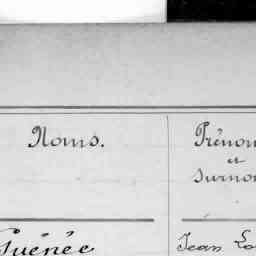 Noms.
Prénoms
et
surnoms
Guénée
Jean Lo